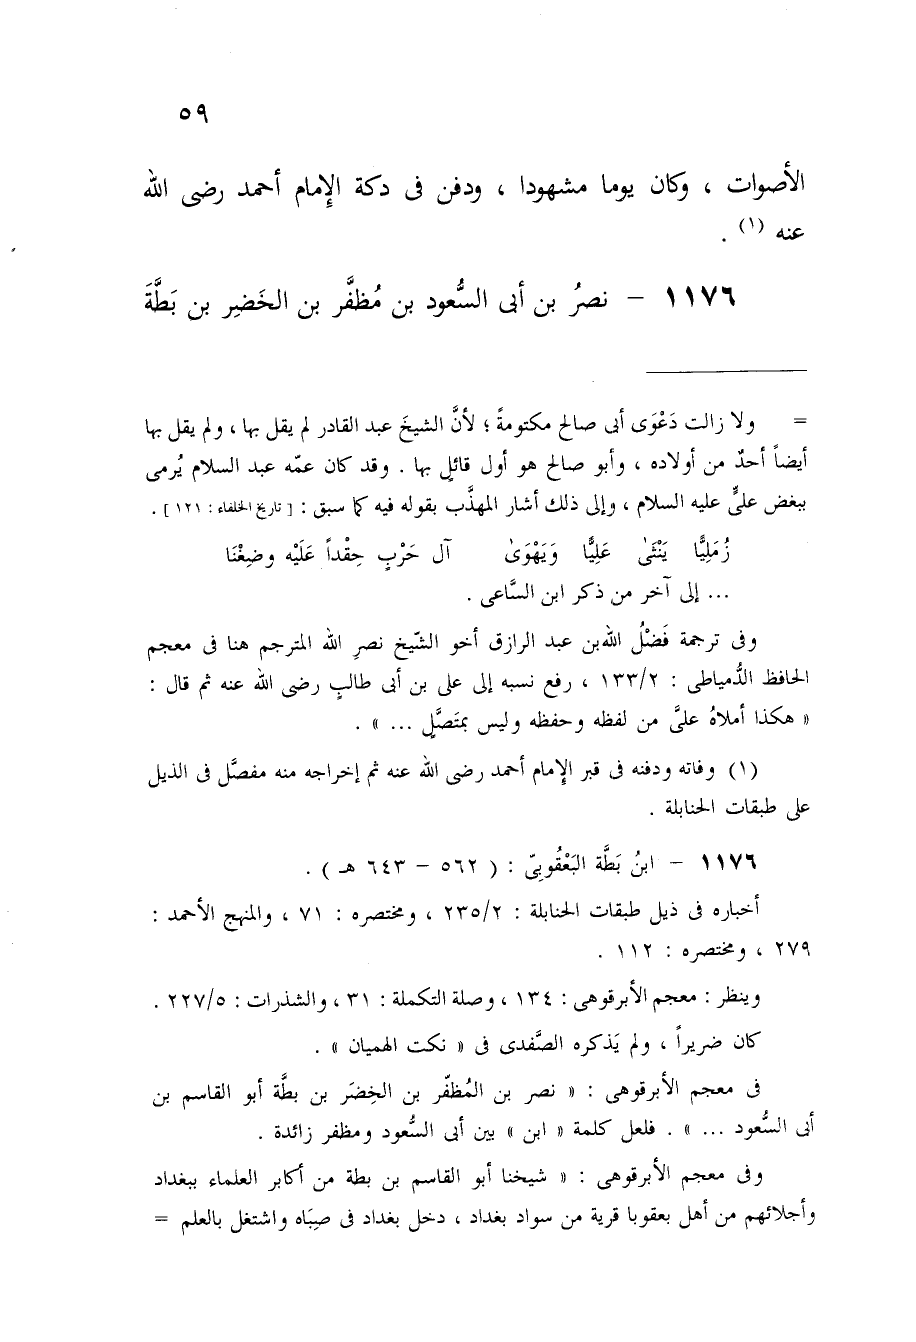 ٥٩
الأصوات ، وكان يوما مشهودا ، ودفن فى دكة الإمام أحمد رضى الله
عنه (١) .
١١٧٦ - نصرُ بن أبى السُّعود بن مُظفَّر بن الخَضِير بن بَطَّةَ
= ولا زالت دَعْوَى أبى صالح مكتومةً ؛ لأنَّ الشيخَ عبد القادر لم يقل بها ، ولم يقل بها
أيضاً أحدٌ من أولاده ، وأبو صالح هو أول قائلٍ بها . وقد كان عمّه عبد السلام يُرمى
ببغض علىٍّ عليه السلام ، وإلى ذلك أشار المهذَّب بقوله فيه كما سبق : [ تاريخ الخلفاء : ١٢١ ] .
زُمَلِيًّا يَنْثَىٰ عَلِيًّا وَيَهْوَىٰ آل حَرْبٍ حِقْداً عَلَيْه وضِغْنَا
... إلى آخر من ذكر ابن السَّاعى .
وفى ترجمة فَضْلُ الله بن عبد الرازق أخو الشّيخ نصرِ الله المترجم هنا فى معجم
الحافظ الدُّمياطى : ١٣٣/٢ ، رفع نسبه إلى على بن أبى طالبٍ رضى الله عنه ثم قال :
« هكذا أملاهُ علىَّ من لفظه وحفظه وليس بمتَصَّلٍ ... » .
(١) وفاته ودفنه فى قبر الإمام أحمد رضى الله عنه ثم إخراجه منه مفصَّل فى الذيل
على طبقات الحنابلة .
١١٧٦ - ابنُ بَطَّة البَعْقُوبِىّ : ( ٥٦٢ - ٦٤٣ هـ ) .
أخباره فى ذيل طبقات الحنابلة : ٢٣٥/٢ ، ومختصره : ٧١ ، والمنهج الأحمد :
٢٧٩ ، ومختصره : ١١٢ .
وينظر : معجم الأبرقوهى : ١٣٤ ، وصلة التكملة : ٣١ ، والشذرات : ٢٢٧/٥ .
كان ضريراً ، ولم يَذكره الصَّفدى فى « نكت الهميان » .
فى معجم الأبرقوهى : « نصر بن المُظفّر بن الخِضَر بن بطَّة أبو القاسم بن
أبى السُّعود ... » . فلعل كلمة « ابن » بين أبى السُّعود ومظفر زائدة .
وفى معجم الأبرقوهى : « شيخنا أبو القاسم بن بطة من أكابر العلماء ببغداد
وأجلائهم من أهل بعقوبا قرية من سواد بغداد ، دخل بغداد فى صِبَاه واشتغل بالعلم =